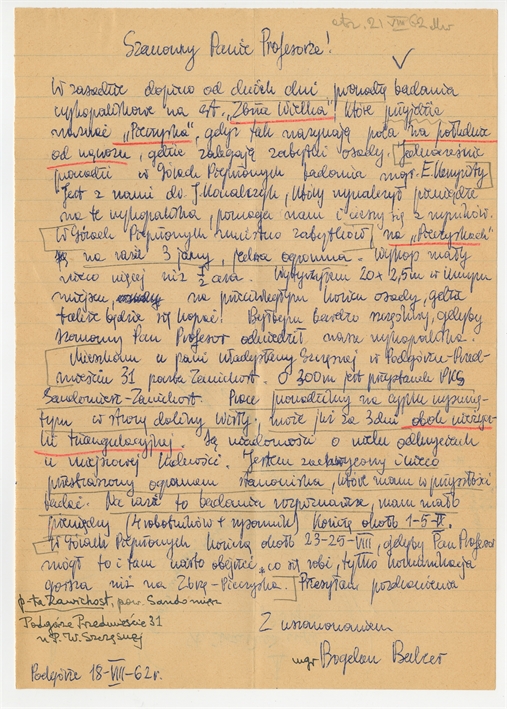 otrz. 21 VIII 62
Szanowny Panie Profesorze!
W zasadzie dopiero od dwóch dni prowadzę badania
wykopaliskowe na st. "Zbrza Wielka", które
nazwać "Pieczyska", gdyż tak nazywają pola na południe
od wąwozu, gdzie zalegają zabytki osady. Jednocześnie
prowadzi w Górach Pieprzowych badania mgr. E. Kempisty
Jest z nami dr. J. Kowalczyk, który wynalazł pieniądze
na te wykopaliska, pomaga nam i cieszy się z wyników.
W Górach Pieprzowych mnóstwo zabytków na "Pieczyskach"
na razie 3 jamy, jedna ogromna. Wykop mały
nieco więcej niż ½ ara. Wytyczyłem 20 x 2,5m w innym
miejscu, na przeciwległym końcu osady, gdzie
także będzie się kopać! Byłbym bardzo szczęśliwy, gdyby
szanowny Pan Profesor odwiedził nasze wykopaliska.
Mieszkam u pani Władysławy Szczęsnej w Podgórzu-Przed-
mieściu 31 poczta Zawichost. O 300m jest przystanek PKS
Sandomierz-Zawichost. Prace prowadzimy na cyplu wysunię-
tym w stronę doliny Wisły, może już za 3 dni obok wieży
triangulacyjnej. Są wiadomości o wielu odkryciach
u miejscowej ludności. Jestem zachwycony i nieco
przestraszony ogromem stanowiska, które mam w przyszłości
badać. Na razie to badania rozpoznawcze, mam mało
pieniędzy (4 robotników + rysownik) Kończę około 1-5-IX.
W Górach Pieprzowych kończą około 23-25-VIII, gdyby Pan Profesor
mógł to i tam warto obejrzeć co się robi, tylko komunikacja
gorsza niż na Zbrzę-Pieczyska. Przesyłam pozdrowienia
p-ta Zawichost, pow. Sandomierz
Podgórze Przedmieście 31
u P. W. Szczęsnej
Z uszanowaniem
mgr Bogdan Balcer
Podgórze 18-VIII-62r.